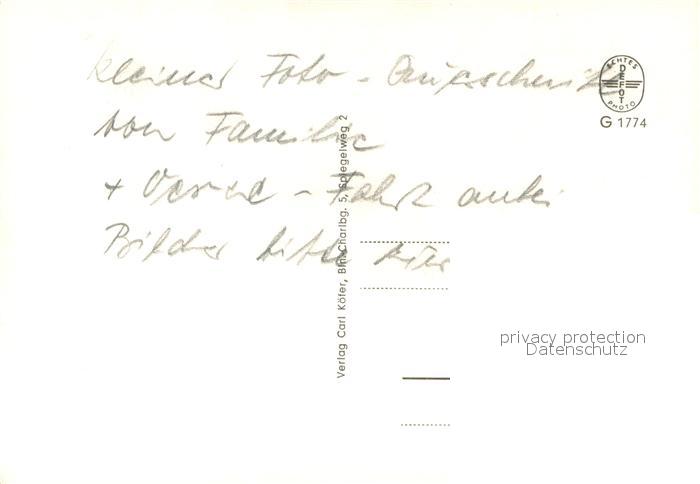 kleiner Foto -
von Familie
+ - Fahrt anbei
Bilder bitte hier
Verlag Carl Köfer, Bln.-Charlbg. 5, Spiegelweg 2
ECHTES
DEFOT
PHOTO
G 1774
privacy protection
Datenschutz